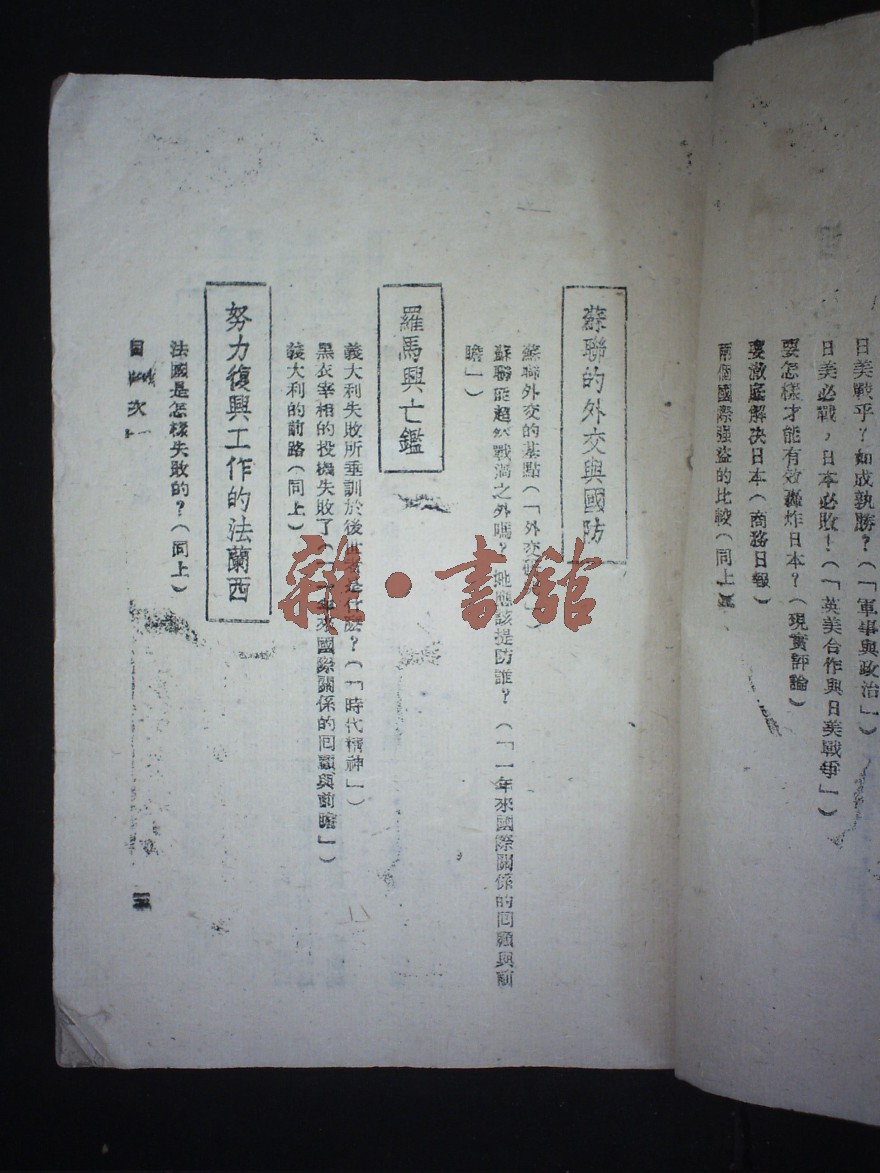 日美戰乎？如成孰勝？（「軍事與政治」）
日美必戰，日本必敗！（「英美合作與日美戰爭」）
要怎樣才能有效轟炸日本？（現實評論）
要澈底解決日本（商務日報）
兩個國際強盜的比較（同上）
蘇聯的外交與國防
蘇聯外交的基點（「外交
蘇聯能超然戰渦之外嗎？她應該提防誰？（「一年來國際關係的囘顧與前
瞻」）
羅馬興亡鑑
義大利失敗所垂訓於後世者是什麼？（「時代精神」）
黑衣宰相的投機失敗了（「一年來國際關係的囘顧與前瞻」）
義大利的前路（同上）
努力復興工作的法蘭西
法國是怎樣失敗的？（同上）
目次
三
雜·書館